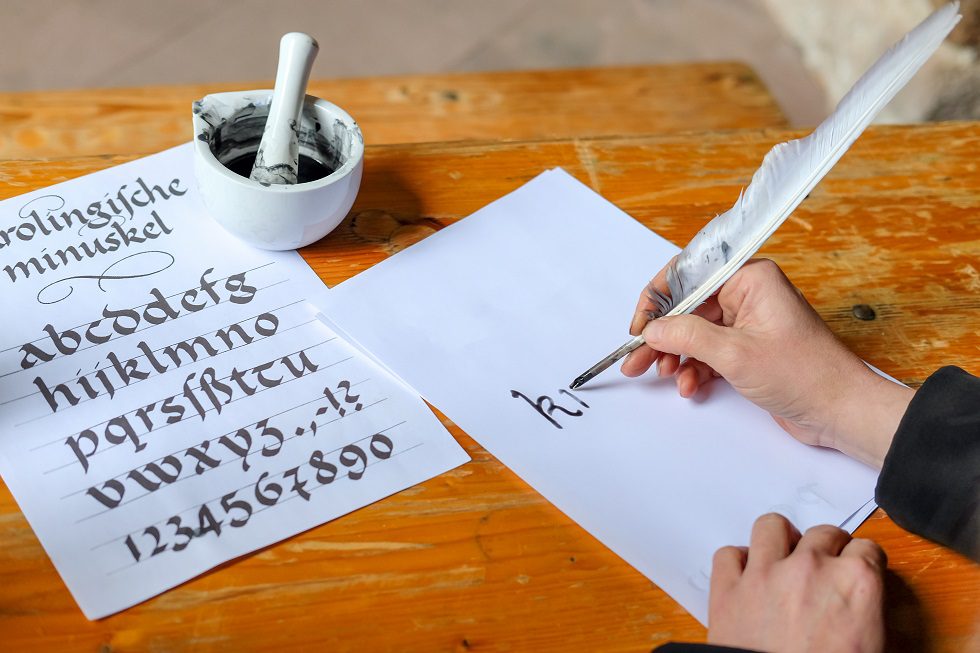 arolingiſche
minuskel
abcddefg
hijklmno
pqrsſßtτu
vwxyz.,;!?
1234567890
k